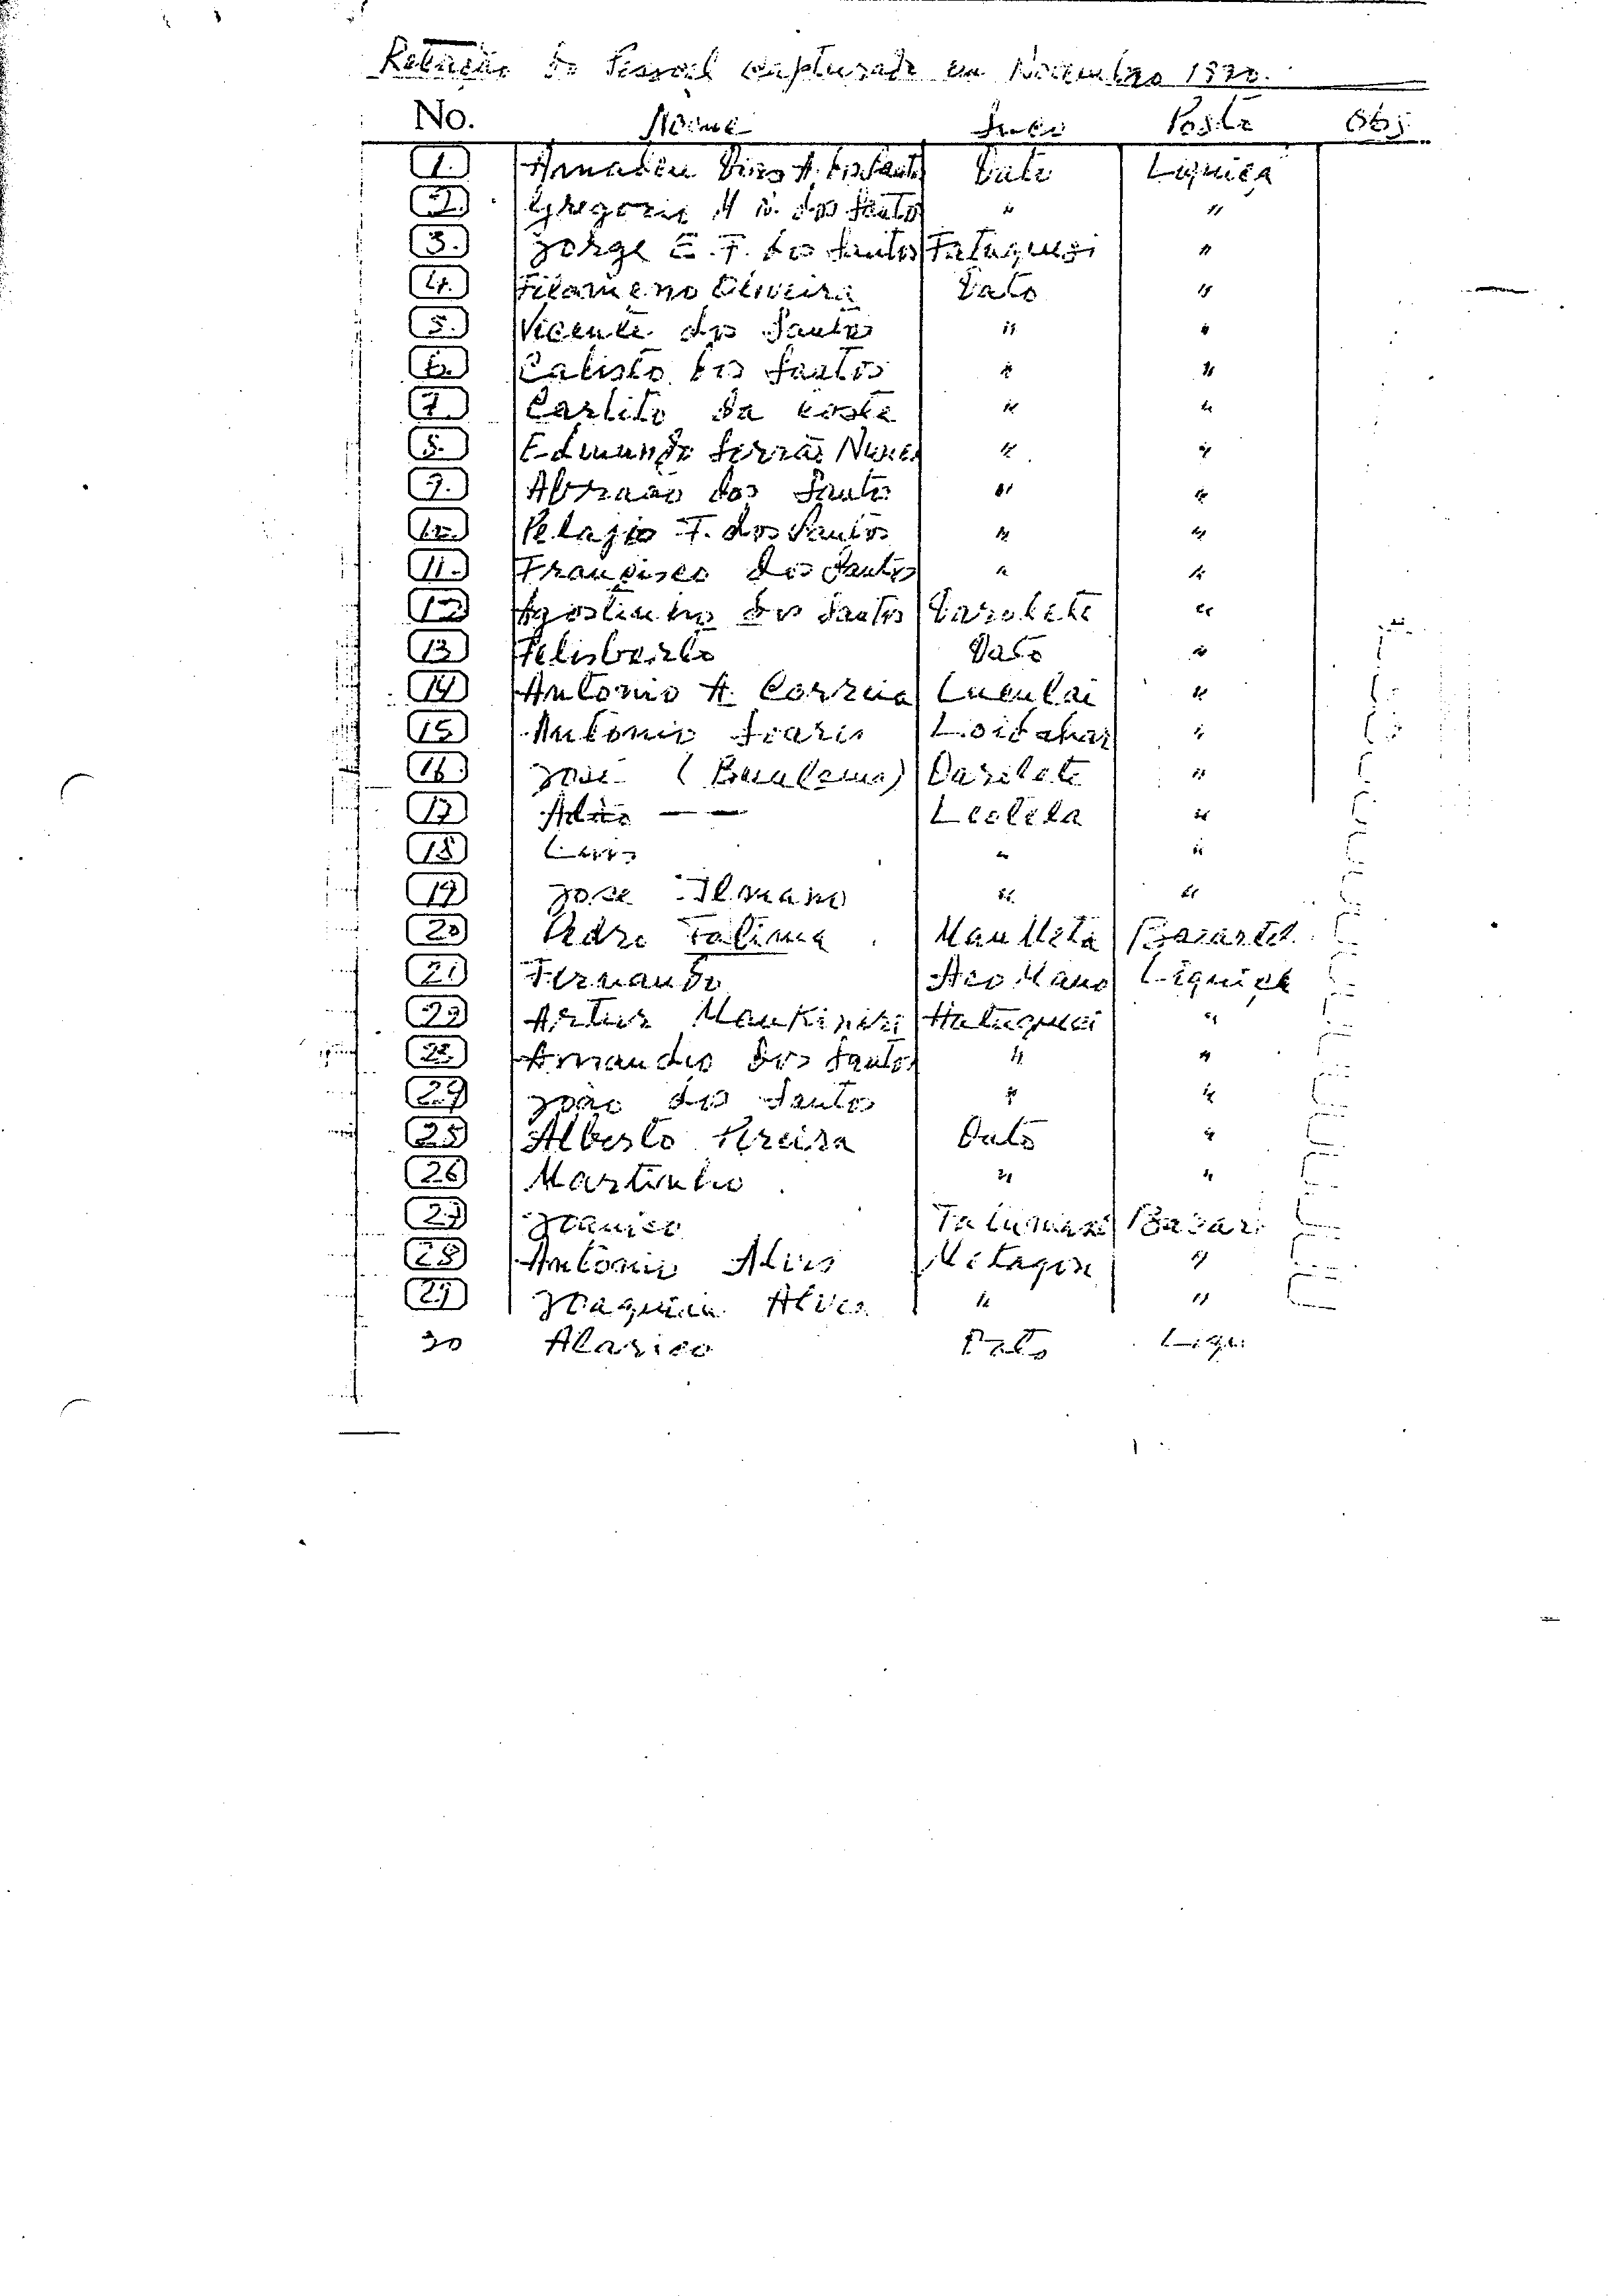 Relação do Pessoal capturado em Novembro
No. Nome Suco Posto Obs
1. dos Santos Dato Liquiça
2. Gregorio M dos Santos " "
3. Jorge E. F. dos Santos Fatuquesi "
4. Filomeno Oliveira Dato "
5. Vicente dos Santos " "
6. Calisto dos Santos " "
7. Carlito da Costa " "
8. Edmundo Serrão Nunes " "
9. Abraão dos Santos " "
10. Pelajio F. dos Santos " "
11. Francisco dos Santos " "
12 Agostinho dos Santos Darolete "
13 Felisberto Dato "
14 Antonio A. Correia Luculai "
15 Antonio Soares Loidahar "
16. José ( ) Darilete "
17 — — Leotela "
18 " "
19 Jose " "
20 Pedro Fatima Maumeta Bazartet.
21 Fernando Liquiça
22 Artur Maukinzi Hatuquesi "
23. Amandio dos Santos " "
24 João dos Santos " "
25 Alberto Pereira Dato "
26 Martinho " "
27 Bazar
28 Antonio Alves "
29 Joaquim Alves " "
30 Alarico Dato Liqui